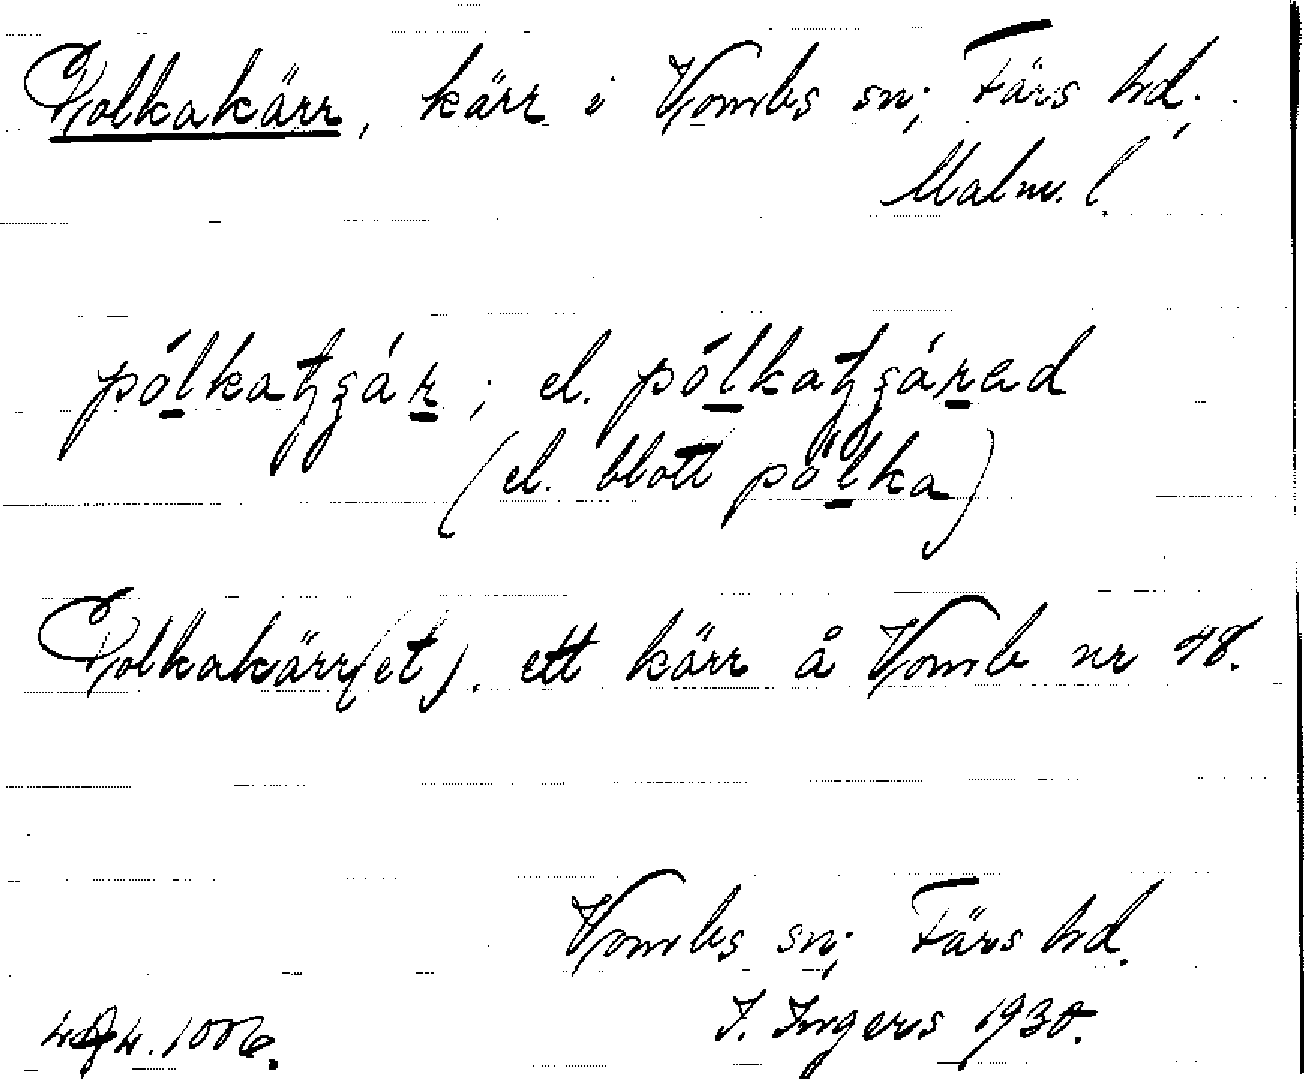 Polkakärr, kärr i Vombs sn; Färs hd,
Malm. l.
el.
(el. blott pólka)
Polkakärr(et), ett kärr å Vomb nr 48.
Vombs sn; Färs hd.
I. Ingers 1930.